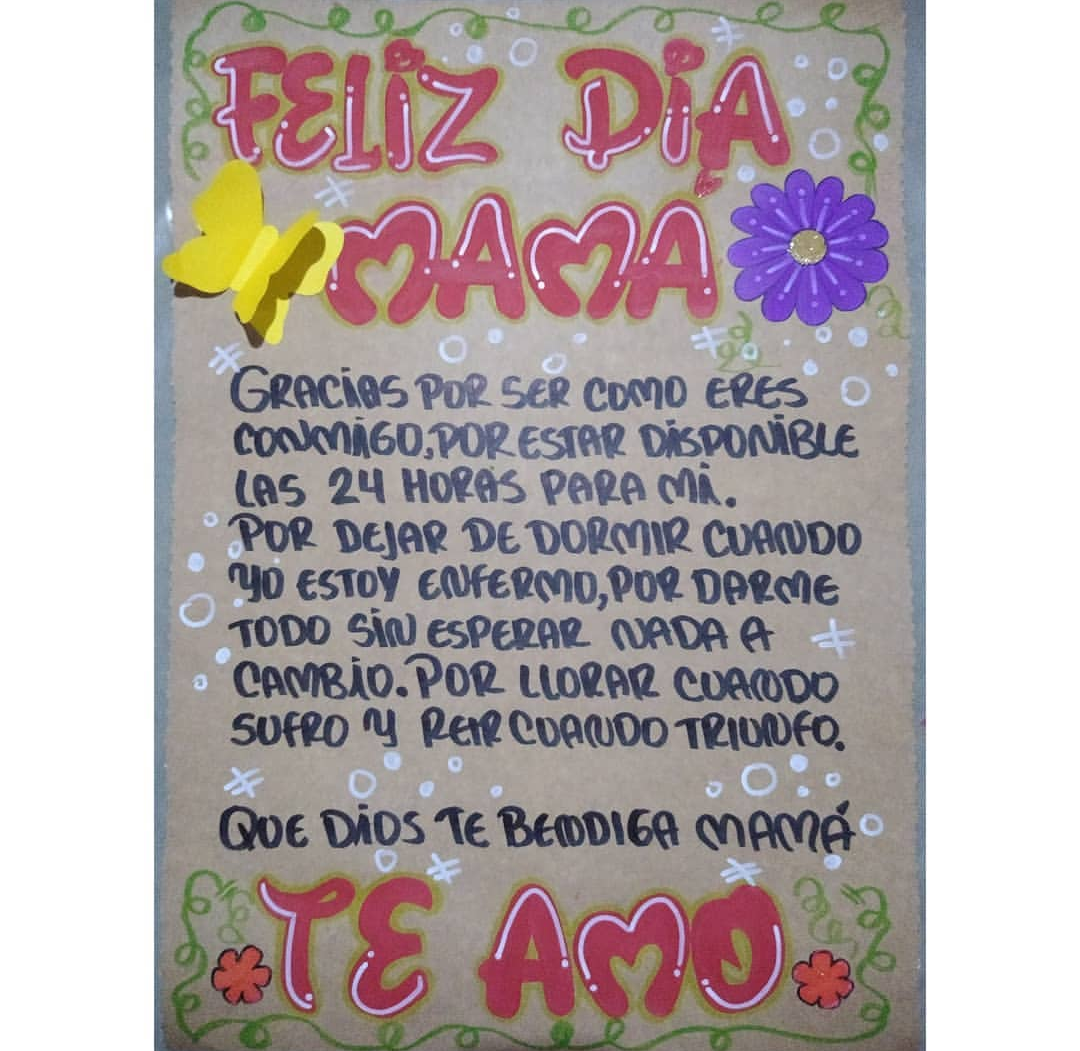 FELIZ DÍA
MAMÁ
GRACIAS POR SER COMO ERES
CONMIGO, POR ESTAR DISPONIBLE
LAS 24 HORAS PARA MI.
POR DEJAR DE DORMIR CUANDO
YO ESTOY ENFERMO, POR DARME
TODO SIN ESPERAR NADA A
CAMBIO. POR LLORAR CUANDO
SUFRO Y REIR CUANDO TRIUNFO.
QUE DIOS TE BENDIGA MAMÁ
TE AMO